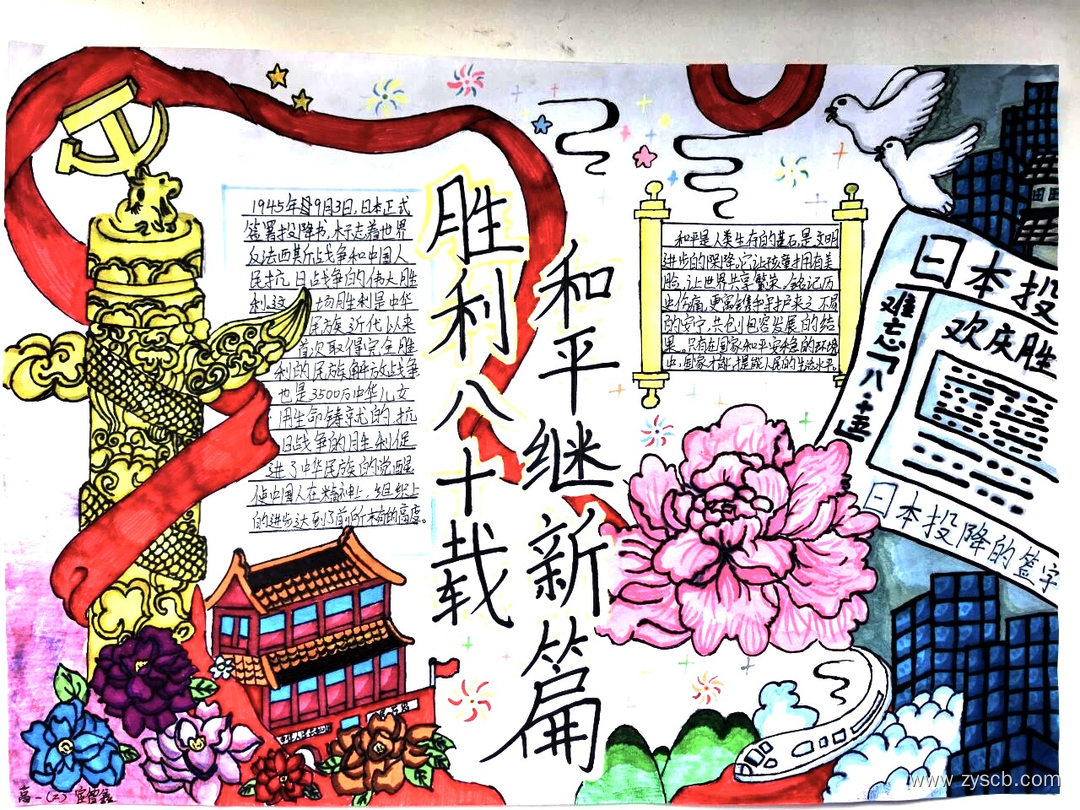 胜利八十载
和平继新篇
1945年9月3日,日本正式
签署投降书,标志着世界
反法西斯战争和中国人
民抗日战争的伟大胜
利这一场胜利是中华
民族近代以来
首次取得完全胜
利的民族解放战争
也是3500万中华儿女
用生命铸就的抗
日战争的胜利促
进了中华民族的觉醒
使中国人在精神上,组织上
的进步达到了前所未有的高度。
和平是人类生存的基石,是文明
进步的阶梯。它让孩童拥有笑
脸,让世界共享繁荣。铭记历
史伤痛,更需维护
的安宁,共创包容发展的结
果。只有在国家和平安全的环境
中,国家才能提供人民的生活水平。
日本投
欢庆胜
难忘
日本投降的签字
高一(2)
www.zyscb.com